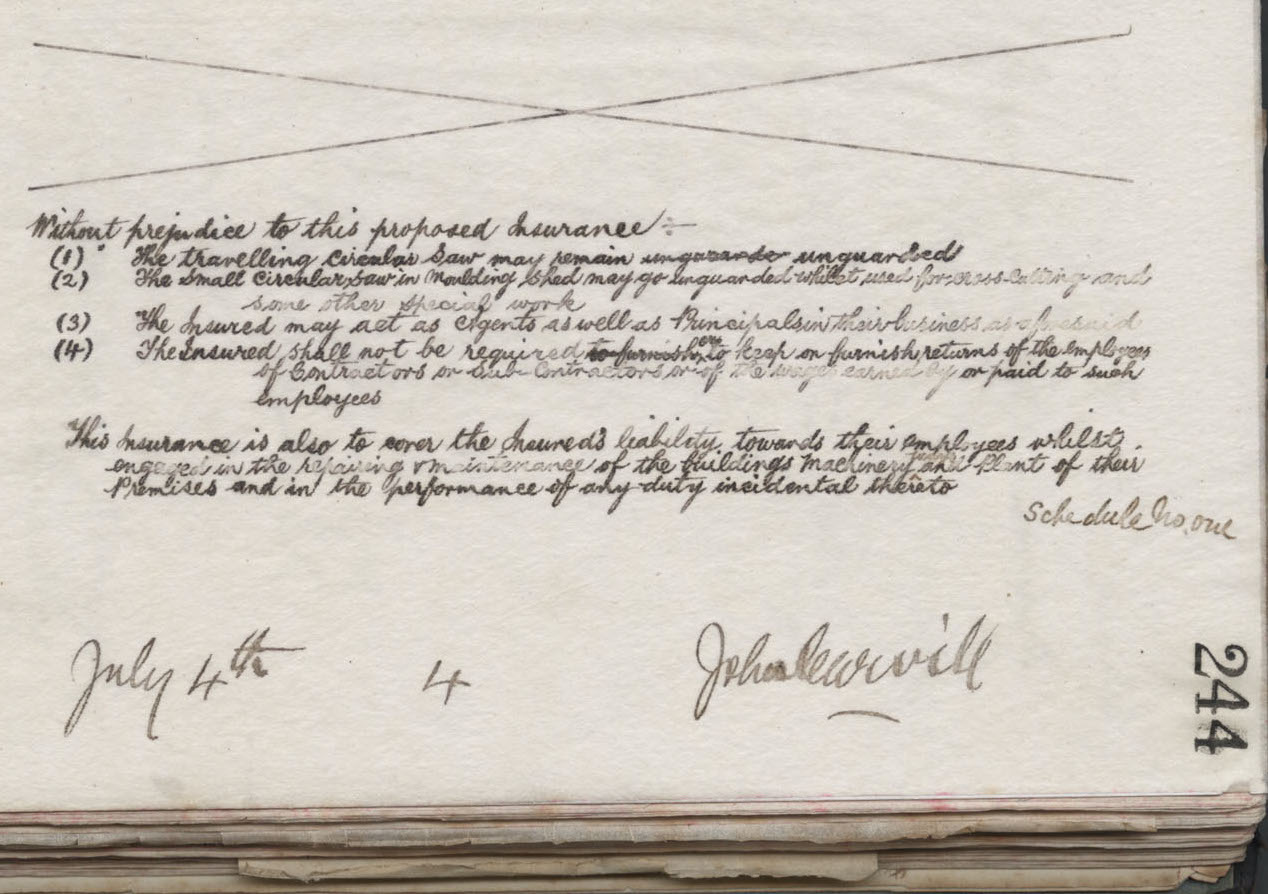 Without prejudice to this proposed Insurance :-
(1) The travelling Circular Saw may remain ungaurde unguarded
(2) The Small Circular Saw in Moulding Shed may go unguarded whilst used for cross Cutting and
some other special work
(3) The Insured may act as Agents as well as Principals in their business as aforesaid
(4) The Insured shall not be required to furnish to keep or furnish returns of the Employees
of Contractors or Sub-Contractors or of the wages earned by or paid to such
employees
This Insurance is also to cover the Insured's liability towards their Employees whilst
engaged in the repairing & maintenance of the buildings Machinery and Plant of their
Premises and in the performance of any duty incidental thereto
Schedule No. one
July 4th 4 John
244